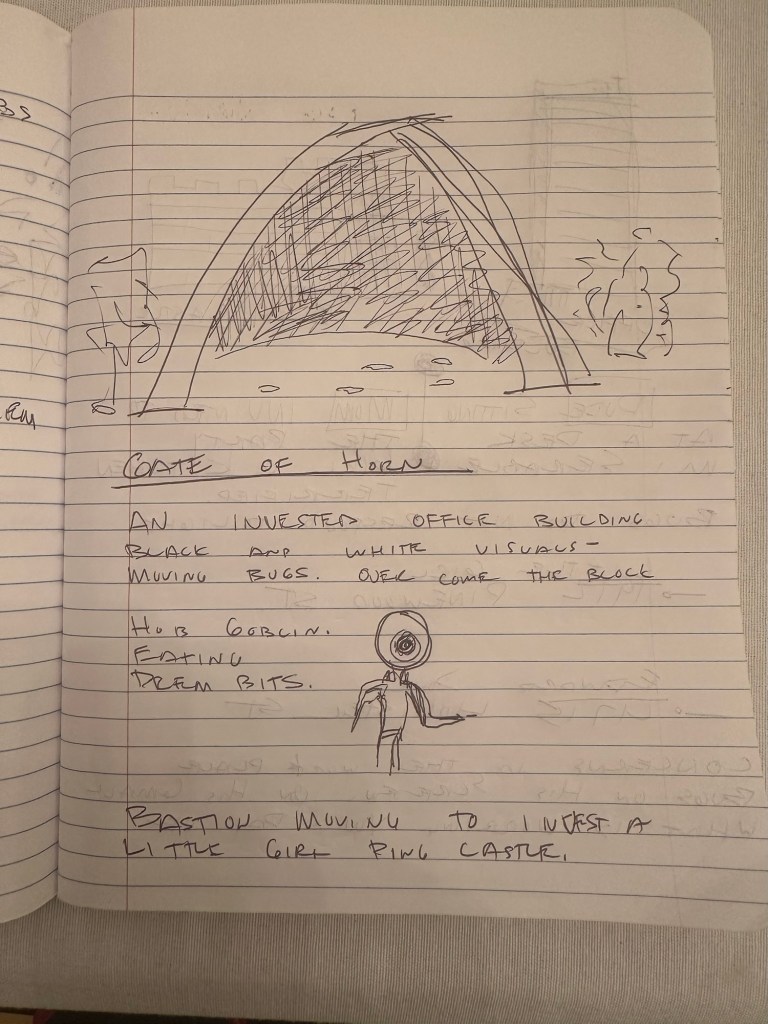 BS
EM
GATE OF HORN
AN INVESTED OFFICE BUILDING
BLACK AND WHITE VISUALS-
MOVING BUGS. OVER COME THE BLOCK
HOB GOBLIN.
EATING
DREM BITS.
BASTION MOVING TO INVEST A
LITTLE GIRL PING CASTLE.